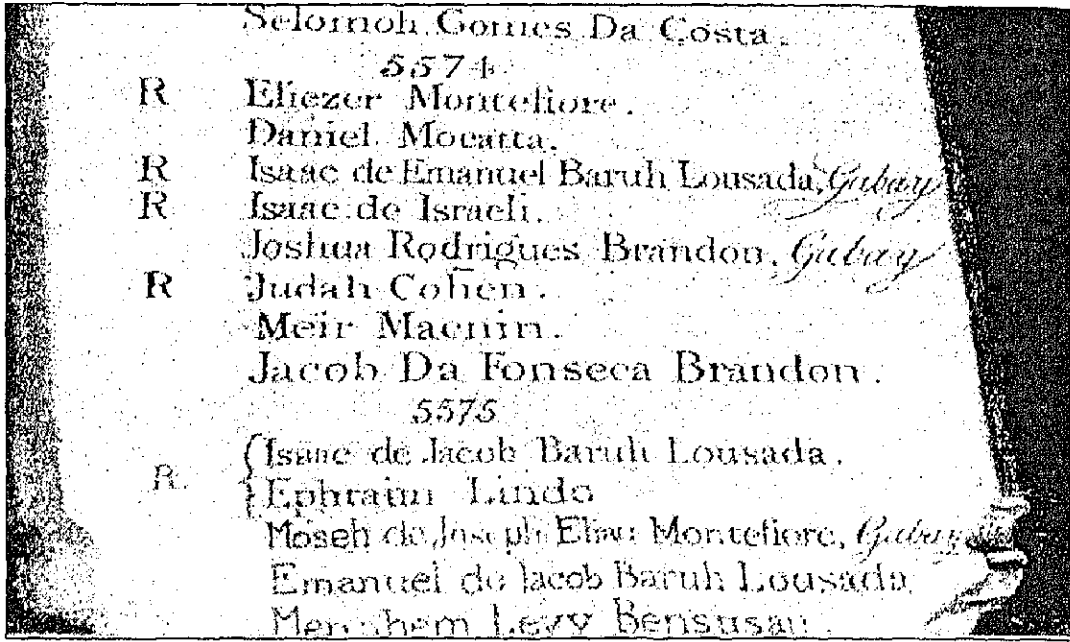 Selomoh Gomes Da Costa.
5574
R Eliezer Montefiore.
Daniel Mocatta.
R Isaac de Emanuel Baruh Lousada, Gabay
R Isaac de Israeli.
Joshua Rodrigues Brandon, Gabay
R Judah Cohen.
Meir Macnin.
Jacob Da Fonseca Brandon.
5575
R. {Isaac de Jacob Baruh Lousada.
}Ephraim Lindo
Moseh de Joseph Eliau Montefiore, Gabay
Emanuel de Jacob Baruh Lousada
Menahem Levy Bensusan.